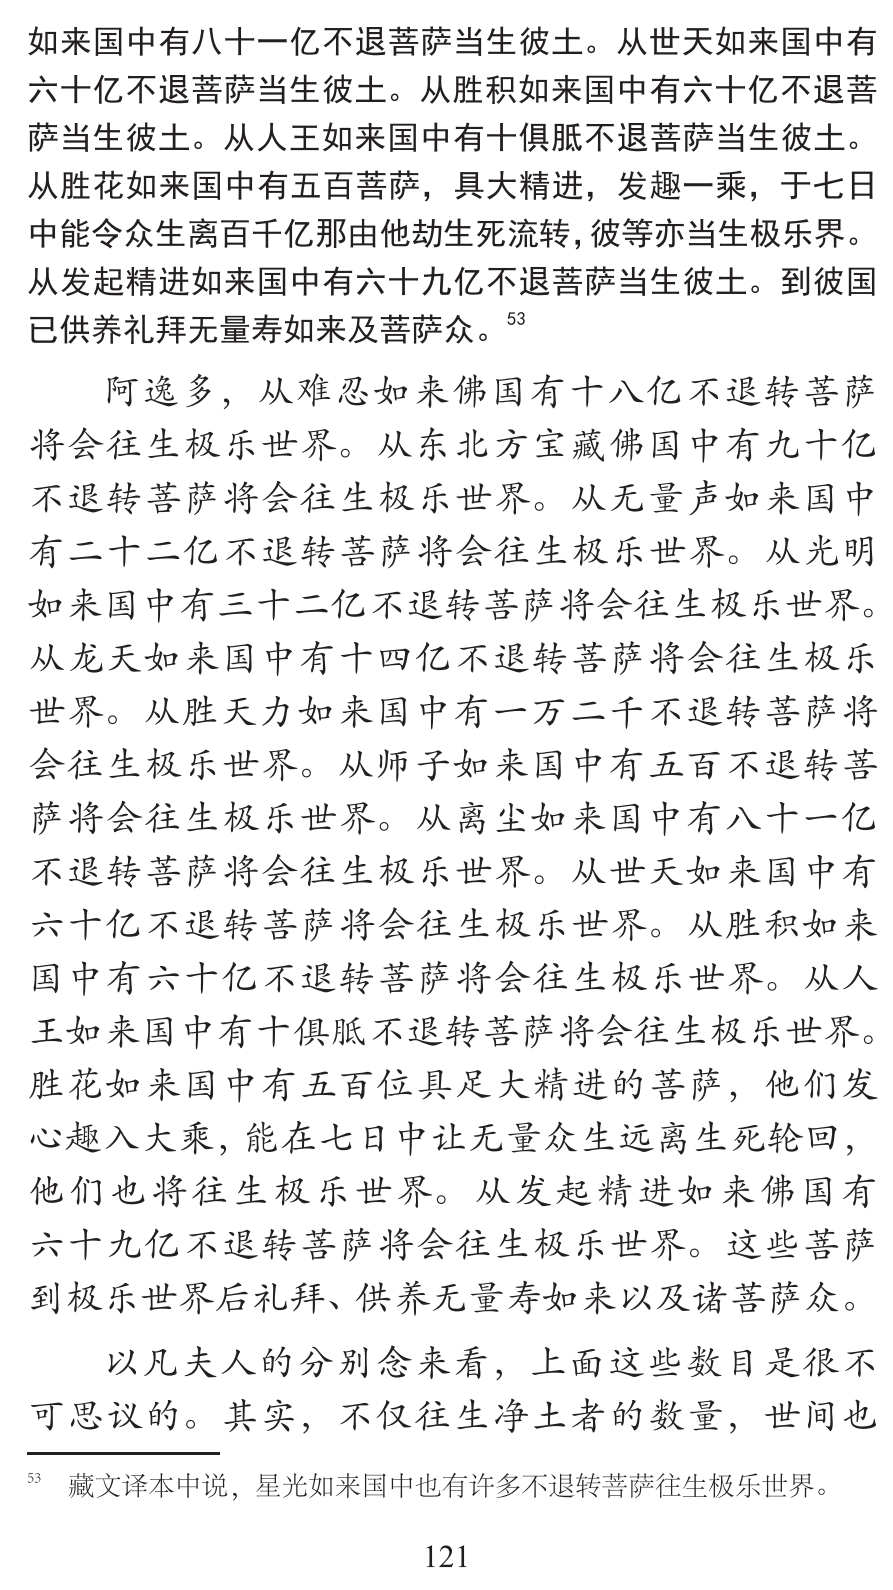 如来国中有八十一亿不退菩萨当生彼土。从世天如来国中有
六十亿不退菩萨当生彼土。从胜积如来国中有六十亿不退菩
萨当生彼土。从人王如来国中有十俱胝不退菩萨当生彼土。
从胜花如来国中有五百菩萨，具大精进，发趣一乘，于七日
中能令众生离百千亿那由他劫生死流转，彼等亦当生极乐界。
从发起精进如来国中有六十九亿不退菩萨当生彼土。到彼国
已供养礼拜无量寿如来及菩萨众。53
阿逸多，从难忍如来佛国有十八亿不退转菩萨
将会往生极乐世界。从东北方宝藏佛国中有九十亿
不退转菩萨将会往生极乐世界。从无量声如来国中
有二十二亿不退转菩萨将会往生极乐世界。从光明
如来国中有三十二亿不退转菩萨将会往生极乐世界。
从龙天如来国中有十四亿不退转菩萨将会往生极乐
世界。从胜天力如来国中有一万二千不退转菩萨将
会往生极乐世界。从师子如来国中有五百不退转菩
萨将会往生极乐世界。从离尘如来国中有八十一亿
不退转菩萨将会往生极乐世界。从世天如来国中有
六十亿不退转菩萨将会往生极乐世界。从胜积如来
国中有六十亿不退转菩萨将会往生极乐世界。从人
王如来国中有十俱胝不退转菩萨将会往生极乐世界。
胜花如来国中有五百位具足大精进的菩萨，他们发
心趣入大乘，能在七日中让无量众生远离生死轮回，
他们也将往生极乐世界。从发起精进如来佛国有
六十九亿不退转菩萨将会往生极乐世界。这些菩萨
到极乐世界后礼拜、供养无量寿如来以及诸菩萨众。
以凡夫人的分别念来看，上面这些数目是很不
可思议的。其实，不仅往生净土者的数量，世间也
53 藏文译本中说，星光如来国中也有许多不退转菩萨往生极乐世界。
121